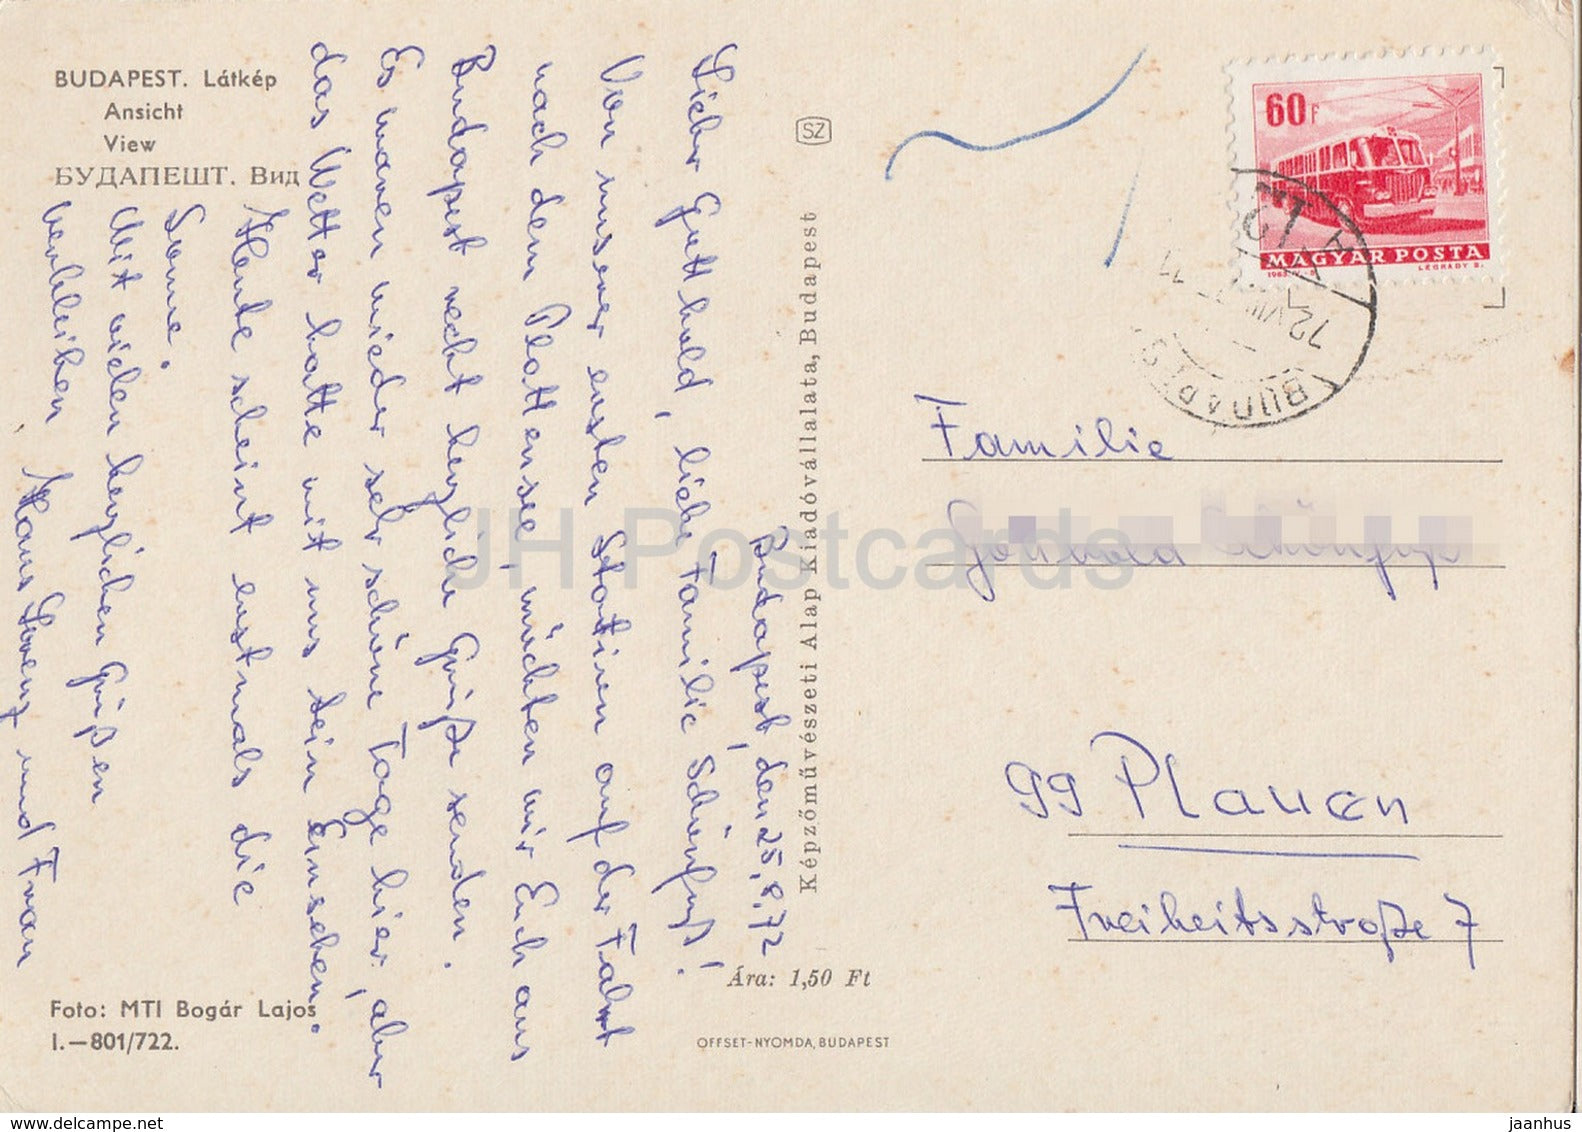 BUDAPEST. Látkép
Ansicht
View
БУДАПЕШТ. Вид
Budapest, den 25.8.72
Lieber Gotthold, liebe Familie Schönfuß!
Von unserer ersten Station auf der Fahrt
nach dem Plattensee, möchten wir Euch aus
Budapest recht herzliche Grüße senden.
Es waren wieder sehr schöne Tage hier, aber
das Wetter hatte mit uns kein Einsehen.
Heute scheint erstmals die
Sonne.
Mit vielen herzlichen Grüßen
verbleiben Hans Lorenz und Frau
Foto: MTI Bogár Lajos
I.—801/722.
SZ
Képzőművészeti Alap Kiadóvállalata, Budapest
Ára: 1,50 Ft
OFFSET-NYOMDA, BUDAPEST
60 f
MAGYAR POSTA
1963
LÉGRÁDY S.
BUDAPEST
72 VIII
Familie
99 Plauen
Freiheitsstraße 7
JH Postcards
jaanhus
HipPostcard.com